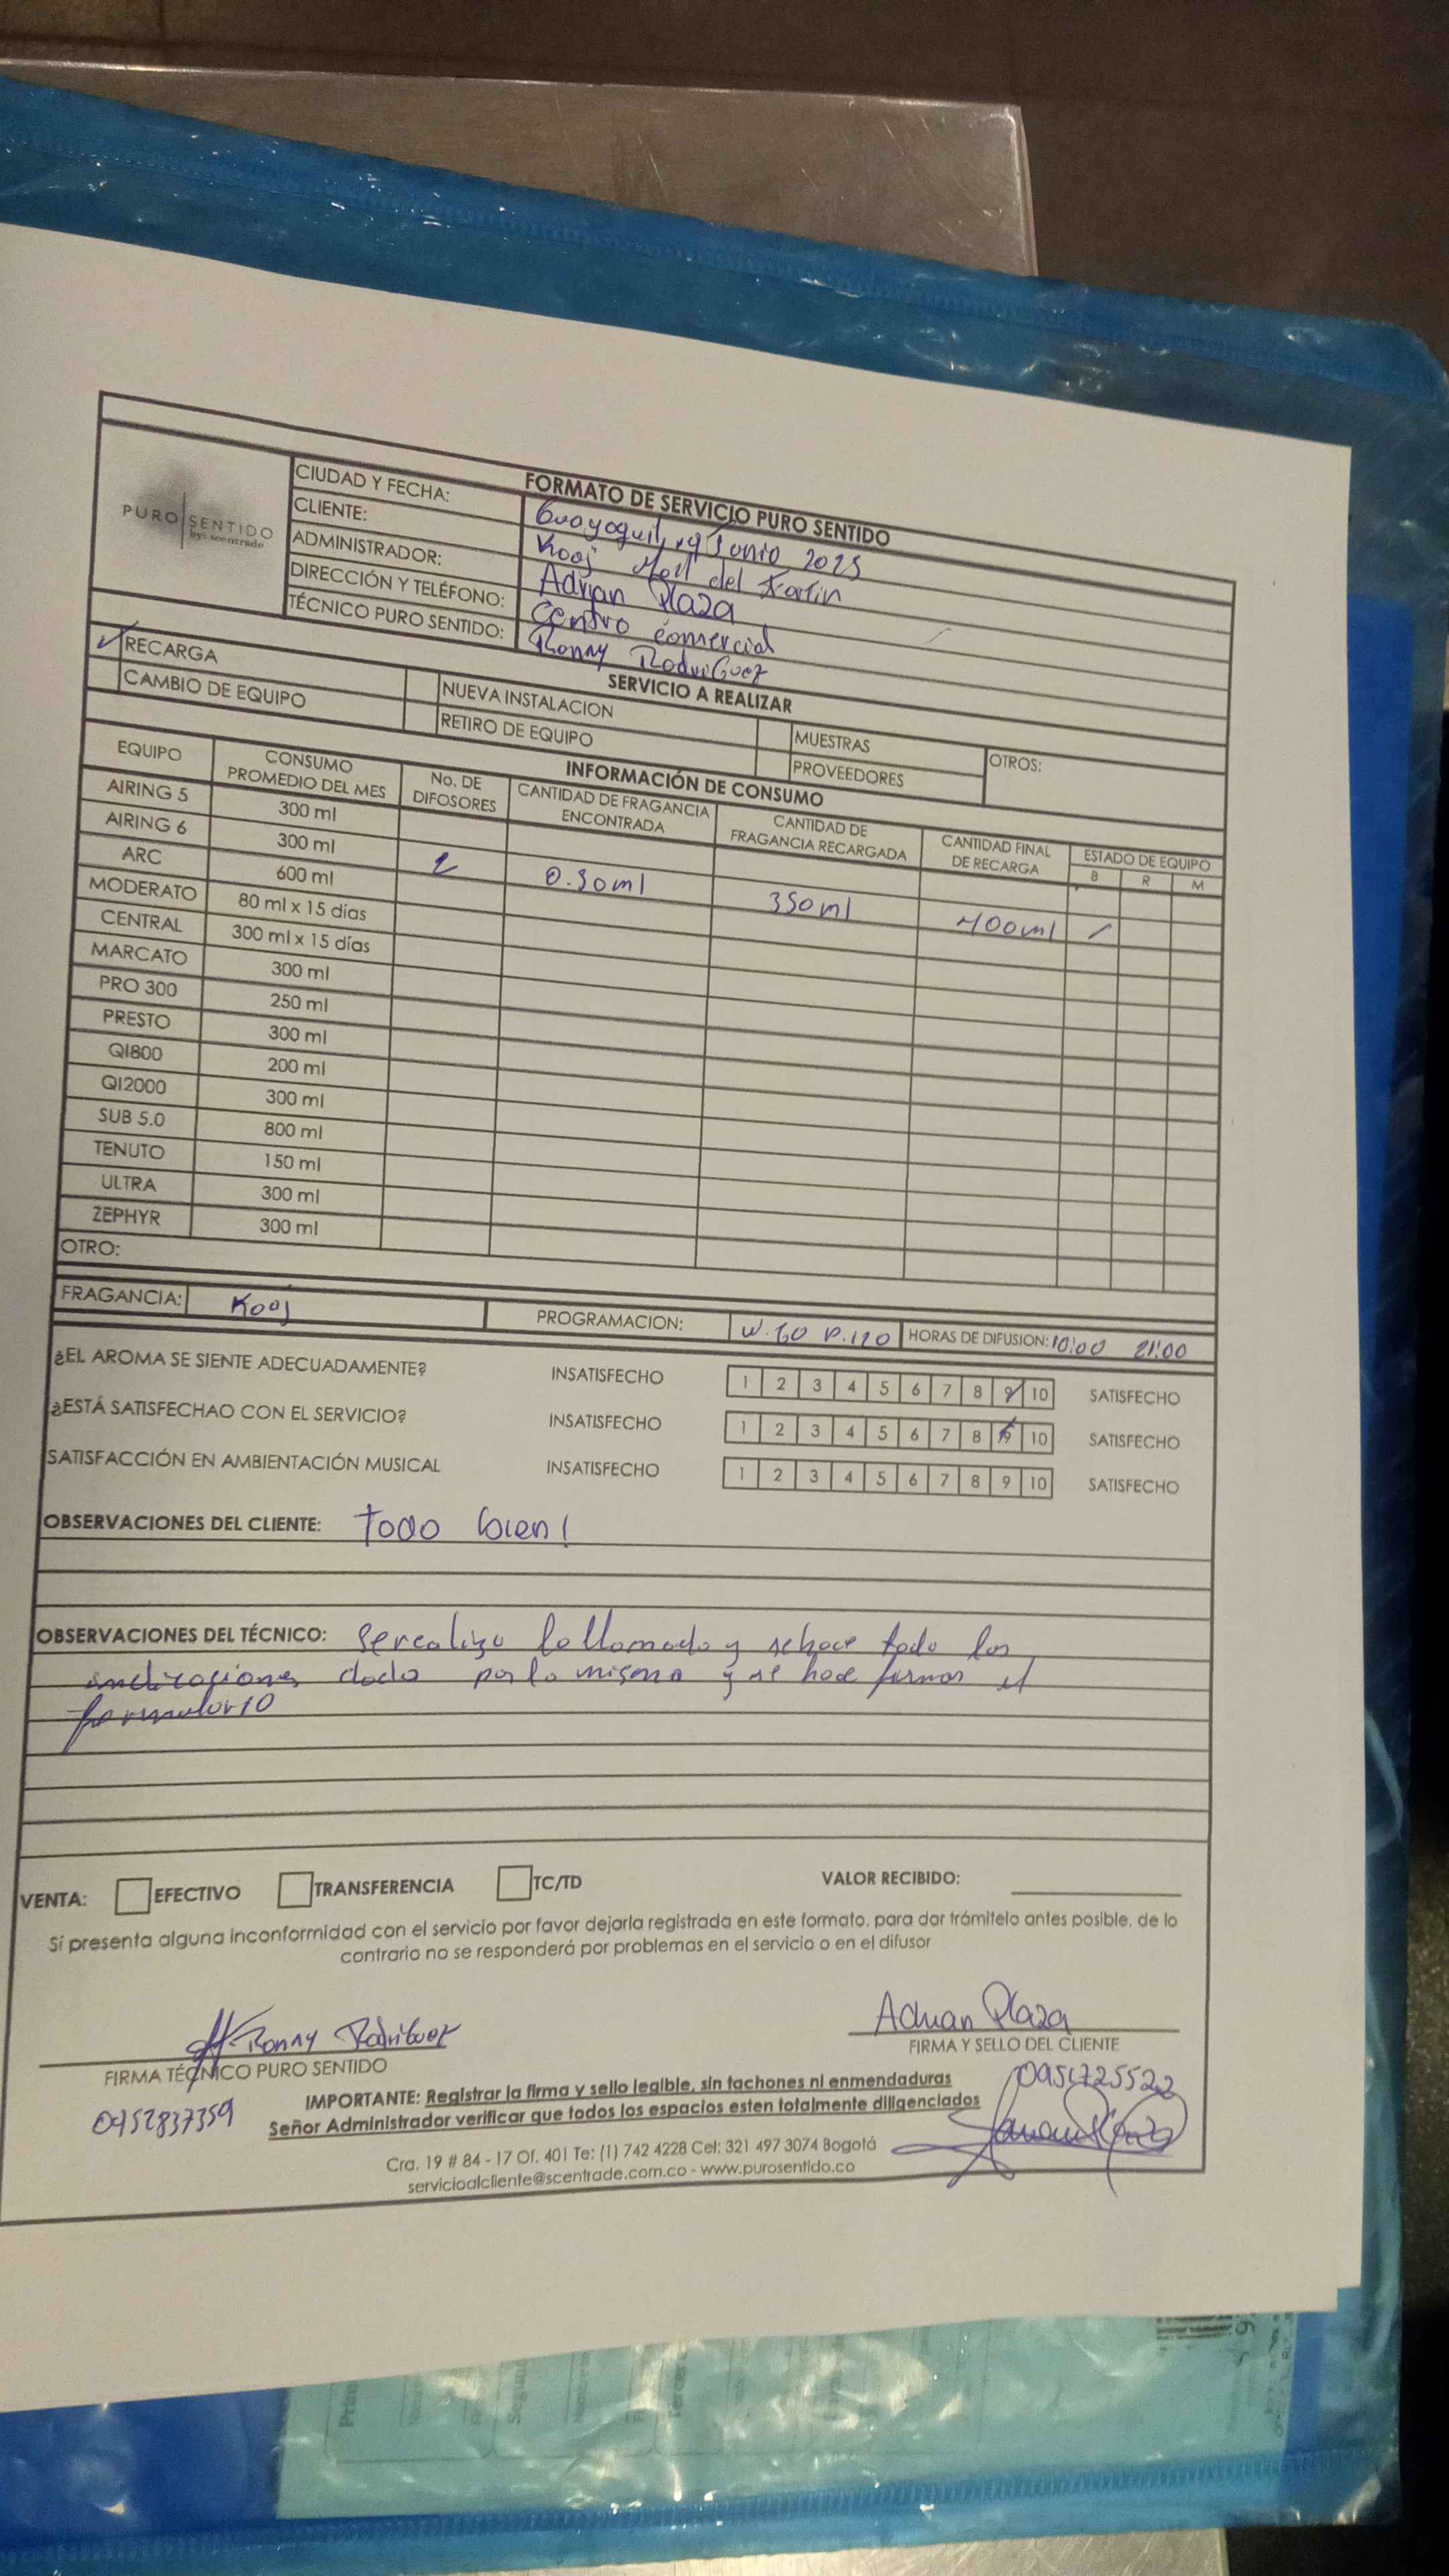 FORMATO DE SERVICIO PURO SENTIDO
PURO SENTIDO
by: scentrade
CIUDAD Y FECHA: Guayaquil, 19 Junio 2025
CLIENTE: Kooj Mall del Fortin
ADMINISTRADOR: Adrian Plaza
DIRECCIÓN Y TELÉFONO: Centro comercial
TÉCNICO PURO SENTIDO: Ronny RodriGuez
SERVICIO A REALIZAR
✓ RECARGA NUEVA INSTALACION MUESTRAS OTROS:
CAMBIO DE EQUIPO RETIRO DE EQUIPO PROVEEDORES
INFORMACIÓN DE CONSUMO
EQUIPO CONSUMO PROMEDIO DEL MES No. DE DIFOSORES CANTIDAD DE FRAGANCIA ENCONTRADA CANTIDAD DE FRAGANCIA RECARGADA CANTIDAD FINAL DE RECARGA ESTADO DE EQUIPO
B R M
AIRING 5 300 ml
AIRING 6 300 ml
ARC 600 ml 2 0.50ml 350ml 400ml /
MODERATO 80 ml x 15 días
CENTRAL 300 ml x 15 días
MARCATO 300 ml
PRO 300 250 ml
PRESTO 300 ml
QI800 200 ml
QI2000 300 ml
SUB 5.0 800 ml
TENUTO 150 ml
ULTRA 300 ml
ZEPHYR 300 ml
OTRO:
FRAGANCIA: Kooj PROGRAMACION: W.60 P.120 HORAS DE DIFUSION: 10:00 21:00
¿EL AROMA SE SIENTE ADECUADAMENTE? INSATISFECHO 1 2 3 4 5 6 7 8 9 10 SATISFECHO
¿ESTÁ SATISFECHAO CON EL SERVICIO? INSATISFECHO 1 2 3 4 5 6 7 8 9 10 SATISFECHO
SATISFACCIÓN EN AMBIENTACIÓN MUSICAL INSATISFECHO 1 2 3 4 5 6 7 8 9 10 SATISFECHO
OBSERVACIONES DEL CLIENTE: Todo bien!
OBSERVACIONES DEL TÉCNICO: se realizo la llamada y se hace todo las
indicaciones dada por la misma y se hace firmar el
formulario
VENTA: EFECTIVO TRANSFERENCIA TC/TD VALOR RECIBIDO:
Sí presenta alguna inconformidad con el servicio por favor dejarla registrada en este formato, para dar trámitelo antes posible, de lo
contrario no se responderá por problemas en el servicio o en el difusor
Ronny RodriGuez Adrian Plaza
FIRMA TÉCNICO PURO SENTIDO FIRMA Y SELLO DEL CLIENTE
0952837359 0951725522
IMPORTANTE: Registrar la firma y sello legible, sin tachones ni enmendaduras
Señor Administrador verificar que todos los espacios esten totalmente diligenciados
Cra. 19 # 84 - 17 Of. 401 Te: (1) 742 4228 Cel: 321 497 3074 Bogotá
servicioalcliente@scentrade.com.co - www.purosentido.co